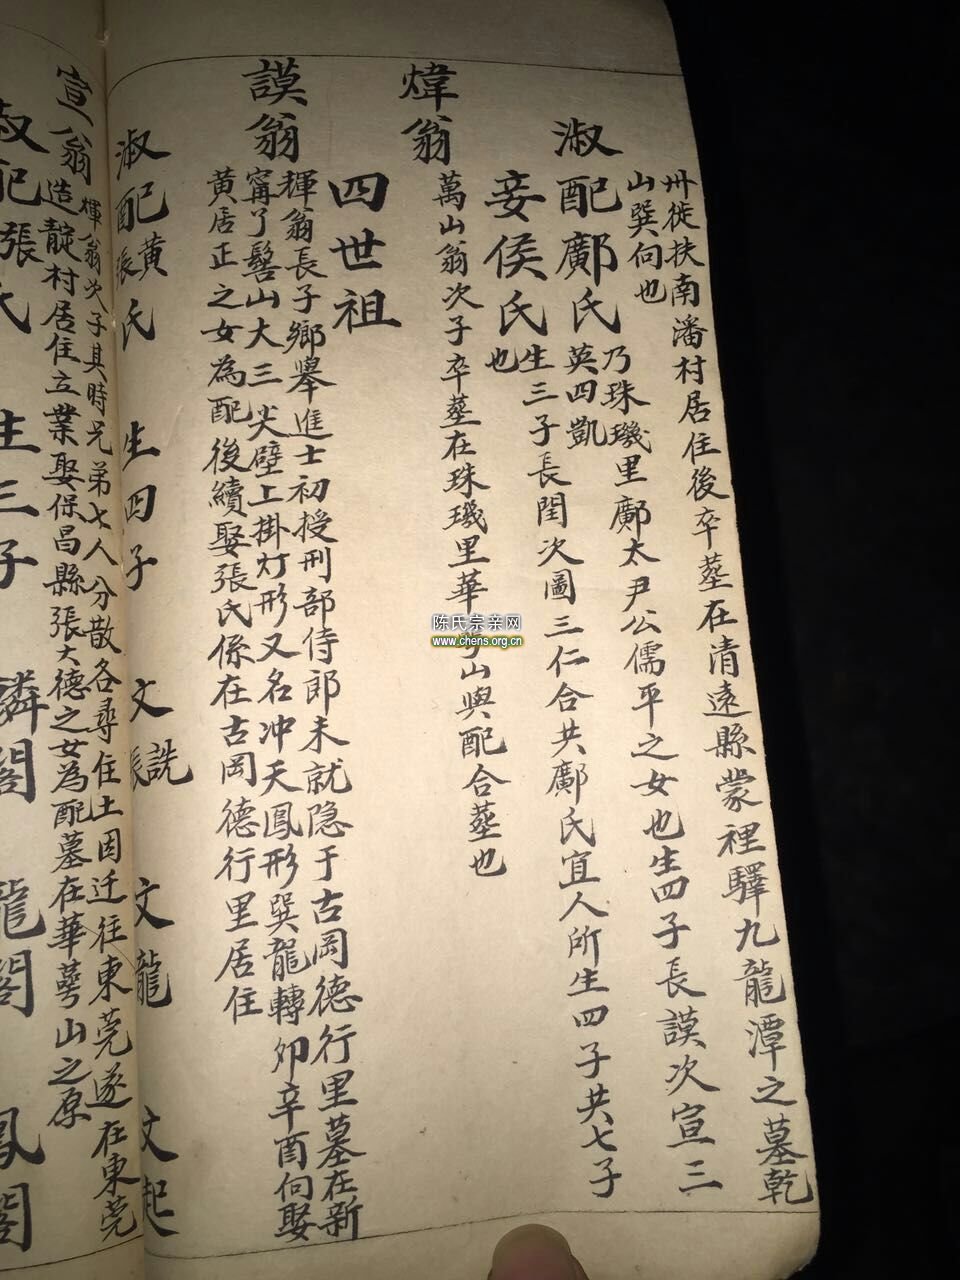 卅徙扶南潘村居住後卒塟在清遠縣蒙裡驛九龍潭之墓乾
山巽向也
淑配鄺氏
乃珠璣里鄺太尹公儒平之女也生四子長謨次宣三
英四凱
妾侯氏
生三子長閏次圖三仁合共鄺氏宜人所生四子共七子
也
煒翁
萬山翁次子卒塟在珠璣里華萼山與配合塟也
四世祖
謨翁
輝翁長子鄉舉進士初授刑部侍郎未就隐于古岡德行里墓在新
甯了髻山大三尖壁上掛灯形又名冲天鳳形巽龍轉卯辛酉向娶
黃居正之女為配後續娶張氏係在古岡德行里居住
淑配黃張氏 生四子 文詵 文龍 文起
宣翁
輝翁次子其時兄弟七人分散各尋住土因迁往東莞遂在東莞
造靛村居住立業娶保昌縣張大德之女為配墓在華萼山之原
淑配張氏 生三子 麟閣 龍閣 鳳閣
陈氏宗亲网
www.chens.org.cn